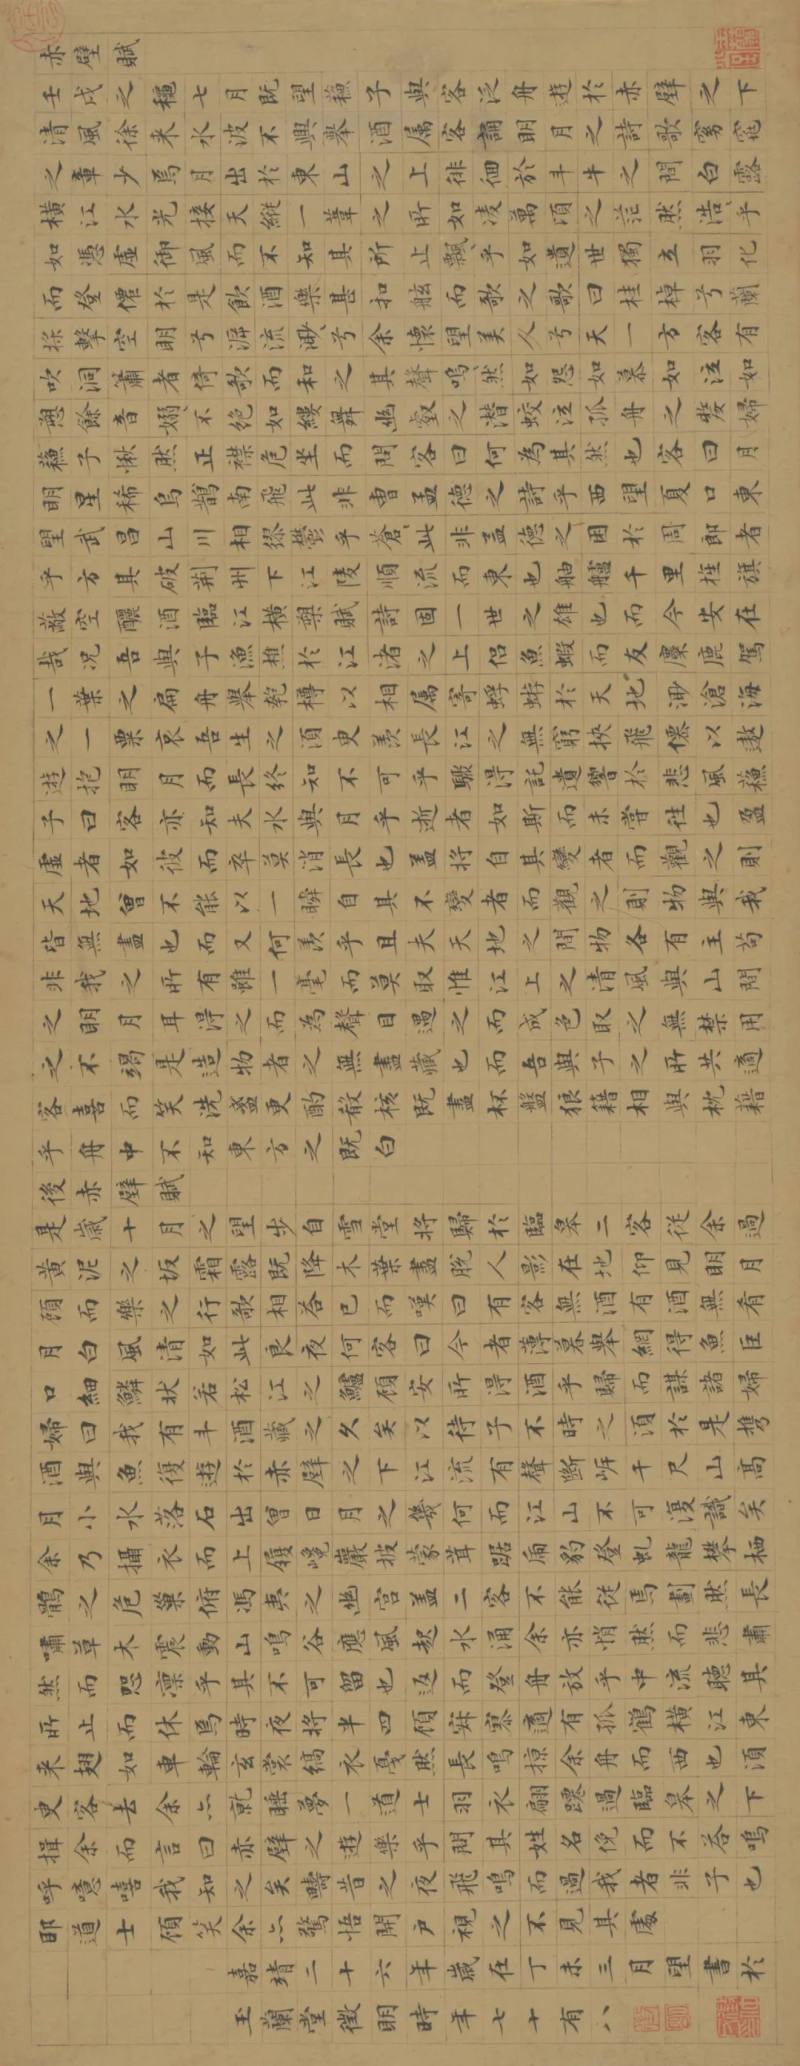 赤壁賦
壬戌之秋七月既望蘇子與客泛舟遊於赤壁之下
清風徐来水波不興舉酒属客誦明月之詩歌窈窕
之章少焉月出於東山之上徘徊於斗牛之間白露
橫江水光接天縱一葦之所如凌萬頃之茫然浩〻乎
如馮虛御風而不知其所止飄〻乎如遺世獨立羽化
而登僊於是飲酒樂甚扣舷而歌之歌曰桂棹兮蘭
槳擊空明兮泝流光渺〻兮余懷望美人兮天一方客有
吹洞簫者倚歌而和之其聲嗚〻然如怨如慕如泣如
愬餘音嫋〻不絕如縷舞幽壑之潛蛟泣孤舟之嫠婦
蘇子愀然正襟危坐而問客曰何為其然也客曰月
明星稀烏鵲南飛此非曹孟德之詩乎西望夏口東
望武昌山川相繆鬱乎蒼〻此非孟德之困於周郎者
乎方其破荆州下江陵順流而東也舳艫千里旌旗
蔽空釃酒臨江橫槊賦詩固一世之雄也而今安在
哉況吾與子漁樵於江渚之上侶魚蝦而友麋鹿駕
一葉之扁舟舉匏樽以相属寄蜉蝣於天地渺滄海
之一粟哀吾生之須臾羨長江之無窮挾飛僊以遨
遊抱明月而長終知不可乎驟得託遺響於悲風蘇
子曰客亦知夫水與月乎逝者如斯而未嘗往也盈
虛者如彼而卒莫消長也盖將自其變者而觀之則
天地曾不能以一瞬自其不變者而觀之則物與我
皆無盡也而又何羨乎且夫天地之間物各有主苟
非我之所有雖一毫而莫取惟江上之清風與山間
之明月耳得之而為聲目遇之而成色取之無禁用
之不竭是造物者之無盡藏也而吾與子之所共適
客喜而笑洗盞更酌殽核既盡杯盤狼籍相與枕藉
乎舟中不知東方之既白
後赤壁賦
是歲十月之望步自雪堂將歸於臨皋二客從余過
黃泥之坂霜露既降木葉盡脫人影在地仰見明月
顧而樂之行歌相答已而嘆曰有客無酒有酒無肴
月白風清如此良夜何客曰今者薄暮舉網得魚巨
口細鱗狀若松江之鱸顧安所得酒乎歸而謀諸婦
婦曰我有斗酒藏之久矣以待子不時之須於是携
酒與魚復遊於赤壁之下江流有聲斷岸千尺山高
月小水落石出曾日月之幾何而江山不可復識矣
余乃攝衣而上履巉巖披蒙茸踞虎豹登虬龍攀栖
鶻之危巢俯馮夷之幽宫盖二客不能從焉劃然長
嘯草木震動山鳴谷應風起水涌余亦悄然而悲肅
然而恐凜乎其不可留也返而登舟放乎中流聽其
所止而休焉時夜將半四顧寂寥適有孤鶴橫江東
来翅如車輪玄裳縞衣戛然長鳴掠余舟而西也須
臾客去余亦就睡夢一道士羽衣翩躚過臨皋之下
揖余而言曰赤壁之遊樂乎問其姓名俛而不答嗚
呼噫嘻我知之矣疇昔之夜飛鳴而過我者非子也
耶道士顧笑余亦驚悟開戶視之不見其處
嘉靖二十六年歲在丁未三月望書於
玉蘭堂徵明時年七十有八